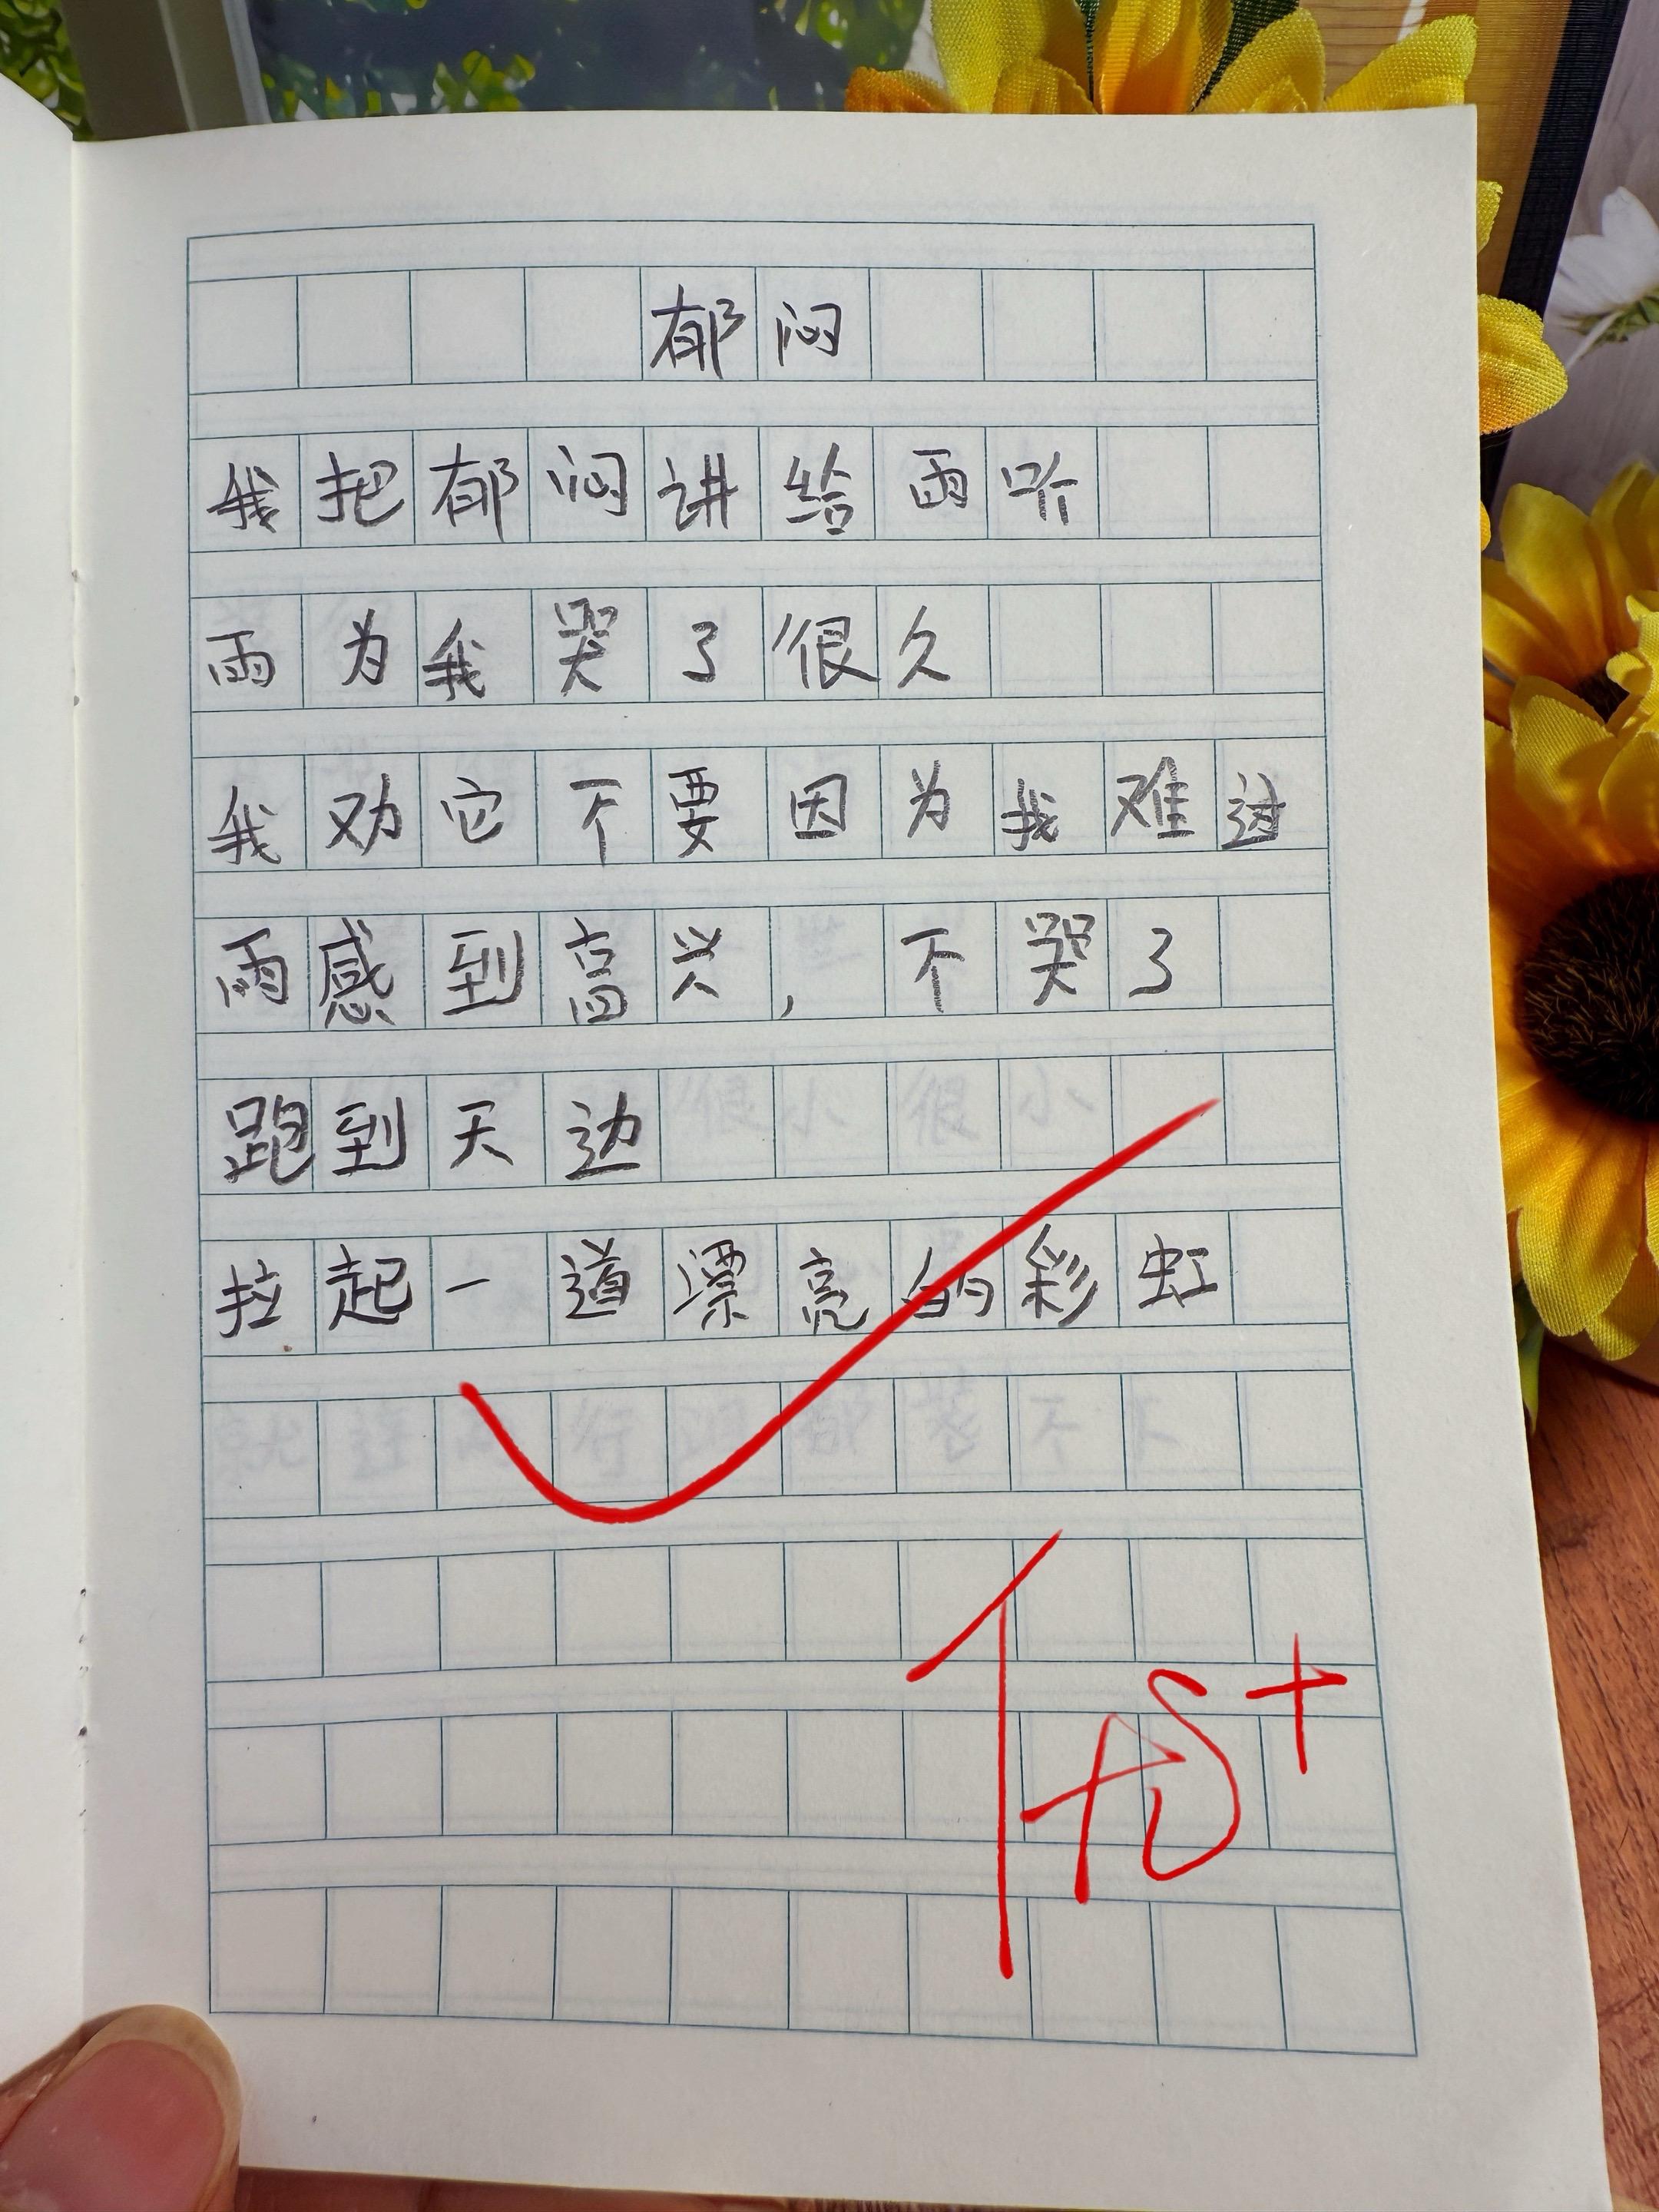 郁闷
我把郁闷讲给雨听
雨为我哭了很久
我劝它不要因为我难过
雨感到高兴，不哭了
跑到天边
拉起一道漂亮的彩虹